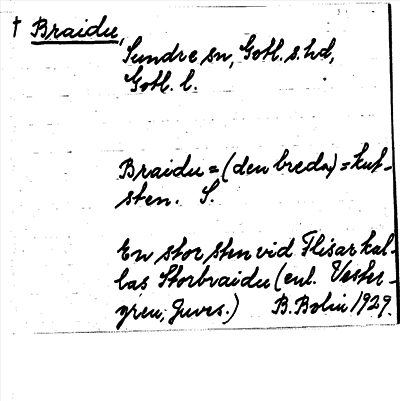 † Braidu,
Sundre sn, Gotl. s. hd,
Gotl. l.
Braidu = (den breda) = kuh-
sten. S.
En stor sten vid Flisarkal-
las Storbraidu (enl. Vester-
gren, Juves.) B. Bolin 1929.